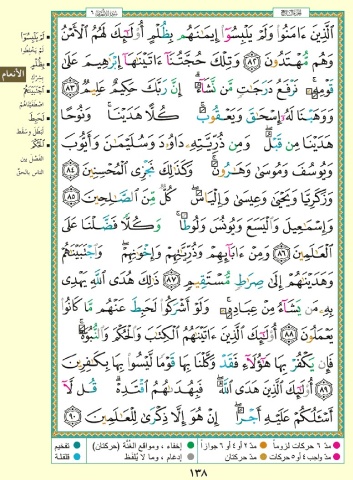 سورة الأنعام ٦
الَّذِينَ ءَامَنُوا وَلَمْ يَلْبِسُوٓا إِيمَٰنَهُم بِظُلْمٍ أُو۟لَٰٓئِكَ لَهُمُ الْأَمْنُ
وَهُم مُّهْتَدُونَ ٨٢ وَتِلْكَ حُجَّتُنَآ ءَاتَيْنَٰهَآ إِبْرَٰهِيمَ عَلَىٰ
قَوْمِهِۦ نَرْفَعُ دَرَجَٰتٍ مَّن نَّشَآءُ إِنَّ رَبَّكَ حَكِيمٌ عَلِيمٌ ٨٣
وَوَهَبْنَا لَهُۥٓ إِسْحَٰقَ وَيَعْقُوبَ كُلًّا هَدَيْنَا وَنُوحًا
هَدَيْنَا مِن قَبْلُ وَمِن ذُرِّيَّتِهِۦ دَاوُۥدَ وَسُلَيْمَٰنَ وَأَيُّوبَ
وَيُوسُفَ وَمُوسَىٰ وَهَٰرُونَ وَكَذَٰلِكَ نَجْزِى الْمُحْسِنِينَ ٨٤
وَزَكَرِيَّا وَيَحْيَىٰ وَعِيسَىٰ وَإِلْيَاسَ كُلٌّ مِّنَ الصَّٰلِحِينَ ٨٥
وَإِسْمَٰعِيلَ وَالْيَسَعَ وَيُونُسَ وَلُوطًا وَكُلًّا فَضَّلْنَا عَلَى
الْعَٰلَمِينَ ٨٦ وَمِنْ ءَابَآئِهِمْ وَذُرِّيَّٰتِهِمْ وَإِخْوَٰنِهِمْ وَاجْتَبَيْنَٰهُمْ
وَهَدَيْنَٰهُمْ إِلَىٰ صِرَٰطٍ مُّسْتَقِيمٍ ٨٧ ذَٰلِكَ هُدَى اللَّهِ يَهْدِى
بِهِۦ مَن يَشَآءُ مِنْ عِبَادِهِۦ وَلَوْ أَشْرَكُوا لَحَبِطَ عَنْهُم مَّا كَانُوا
يَعْمَلُونَ ٨٨ أُو۟لَٰٓئِكَ الَّذِينَ ءَاتَيْنَٰهُمُ الْكِتَٰبَ وَالْحُكْمَ وَالنُّبُوَّةَ
فَإِن يَكْفُرْ بِهَا هَٰٓؤُلَآءِ فَقَدْ وَكَّلْنَا بِهَا قَوْمًا لَّيْسُوا بِهَا بِكَٰفِرِينَ
٨٩ أُو۟لَٰٓئِكَ الَّذِينَ هَدَى اللَّهُ فَبِهُدَىٰهُمُ اقْتَدِهْ قُل لَّآ
أَسْـَٔلُكُمْ عَلَيْهِ أَجْرًا إِنْ هُوَ إِلَّا ذِكْرَىٰ لِلْعَٰلَمِينَ ٩٠
لَمْ يَلْبِسُوا
لم يخلطوا
بِظُلْمٍ
بشرك
اجْتَبَيْنَٰهُمْ
اصطفيناهم
لَحَبِطَ
لبطل وسقط
الْحُكْمَ
الفصل بين
الناس بالحق
الأنعام
مدّ ٦ حركات لزوماً مدّ ٢ أو ٤ أو ٦ جوازاً إخفاء، ومواقع الغنّة (حركتان) تفخيم
مدّ واجب ٤ أو ٥ حركات مدّ حركتان إدغام، وما لا يُلفظ قلقلة
١٣٨